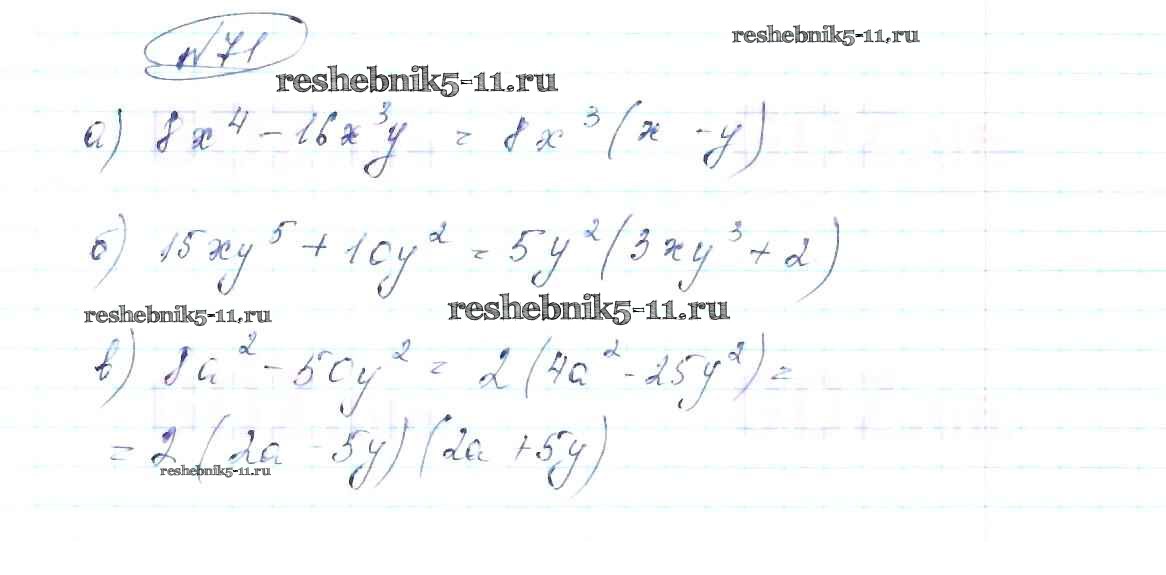 №71
reshebnik5-11.ru
reshebnik5-11.ru
а) 8x⁴ - 16x³y = 8x³(x - y)
б) 15xy⁵ + 10y² = 5y²(3xy³ + 2)
reshebnik5-11.ru
reshebnik5-11.ru
в) 8a² - 50y² = 2(4a² - 25y²) =
= 2(2a - 5y)(2a + 5y)
reshebnik5-11.ru